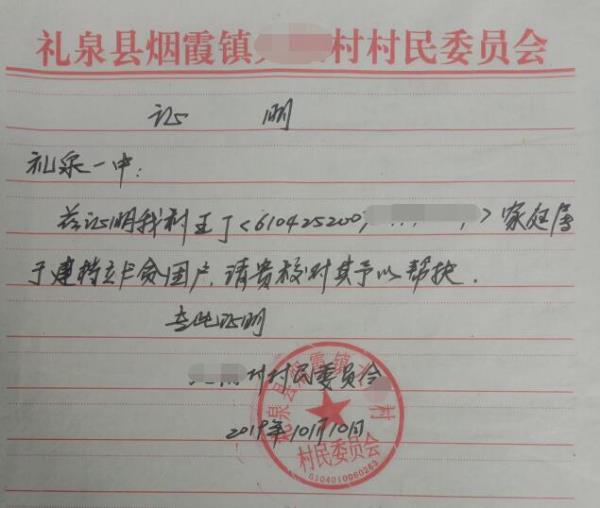 礼泉县烟霞镇村村民委员会
证 明
礼泉一中:
兹证明我村王丁<610425200>家庭属
于建档立卡贫困户,请贵校对其予以帮扶.
专此证明
村村民委员会
2019年10月10日
礼泉县烟霞镇村
村民委员会